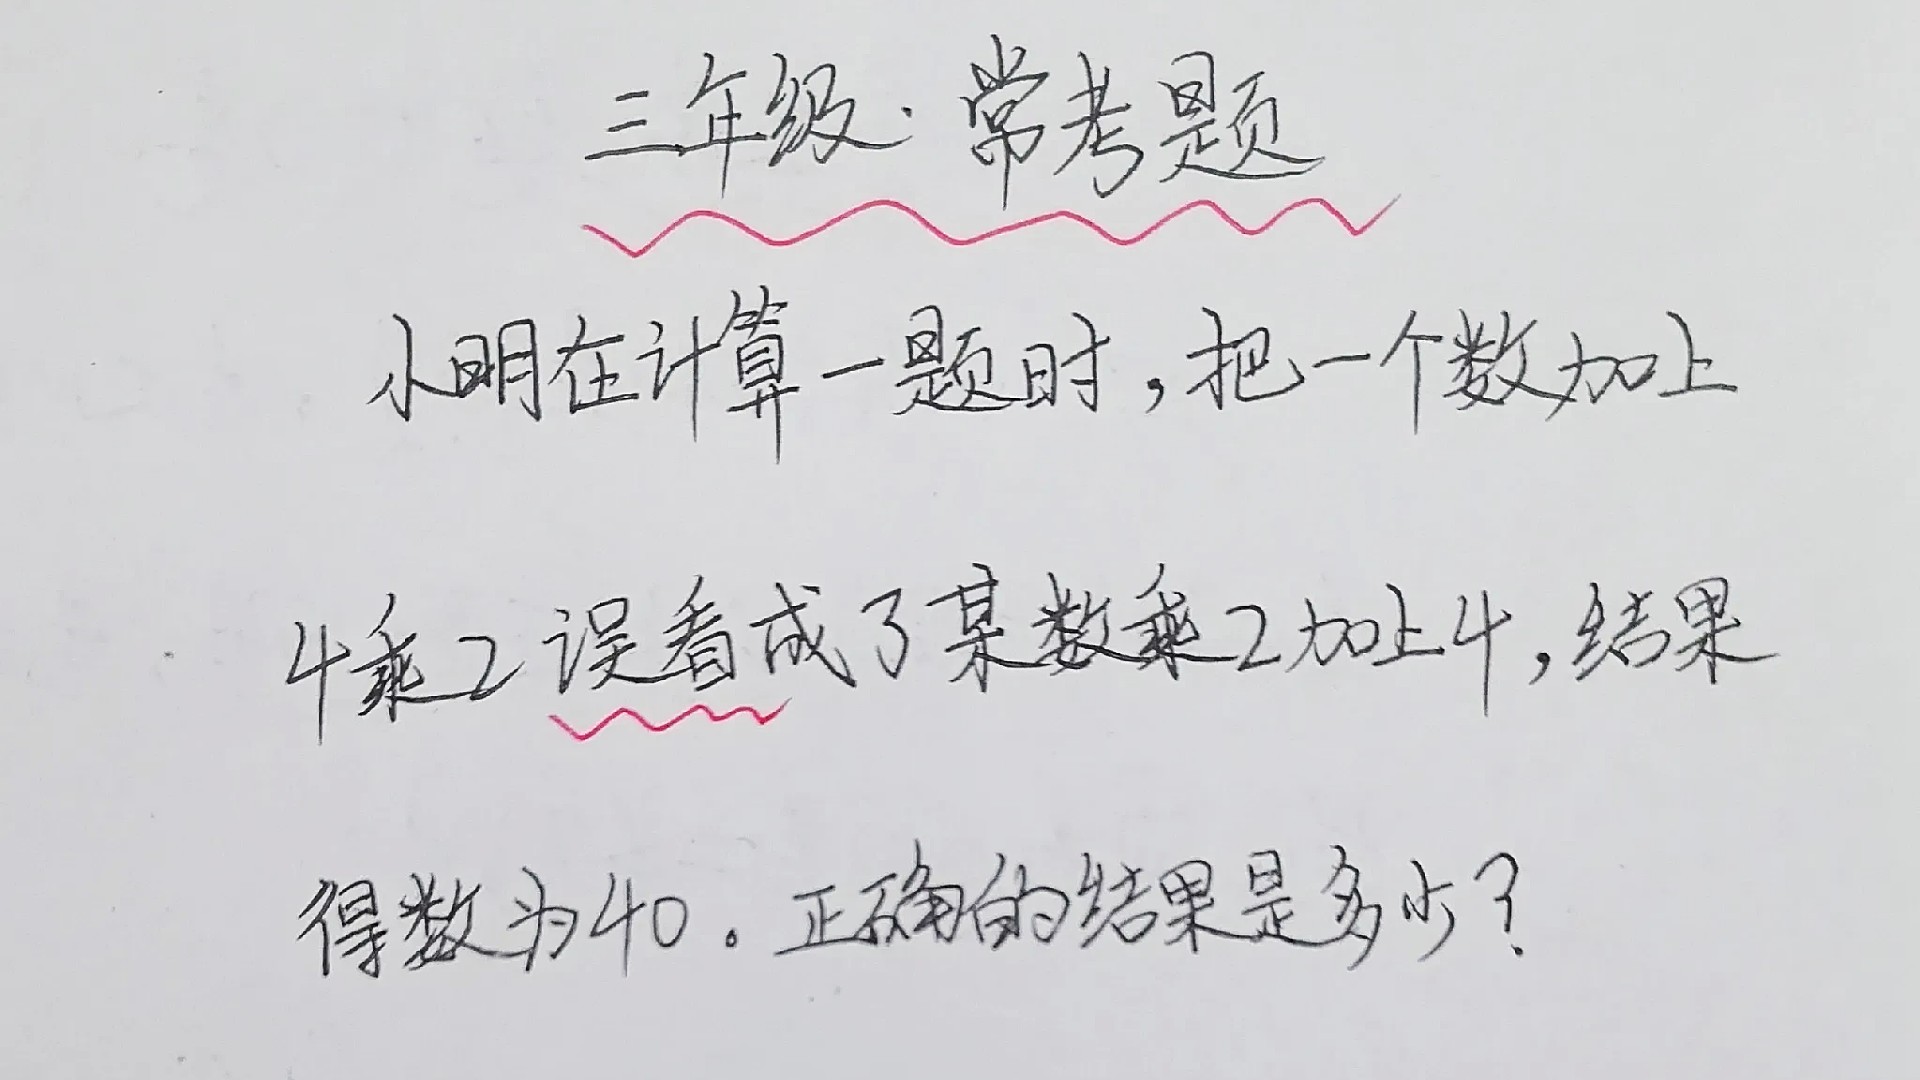 三年级·常考题
小明在计算一题时，把一个数加上
4乘2误看成了某数乘2加上4，结果
得数为40。正确的结果是多少？